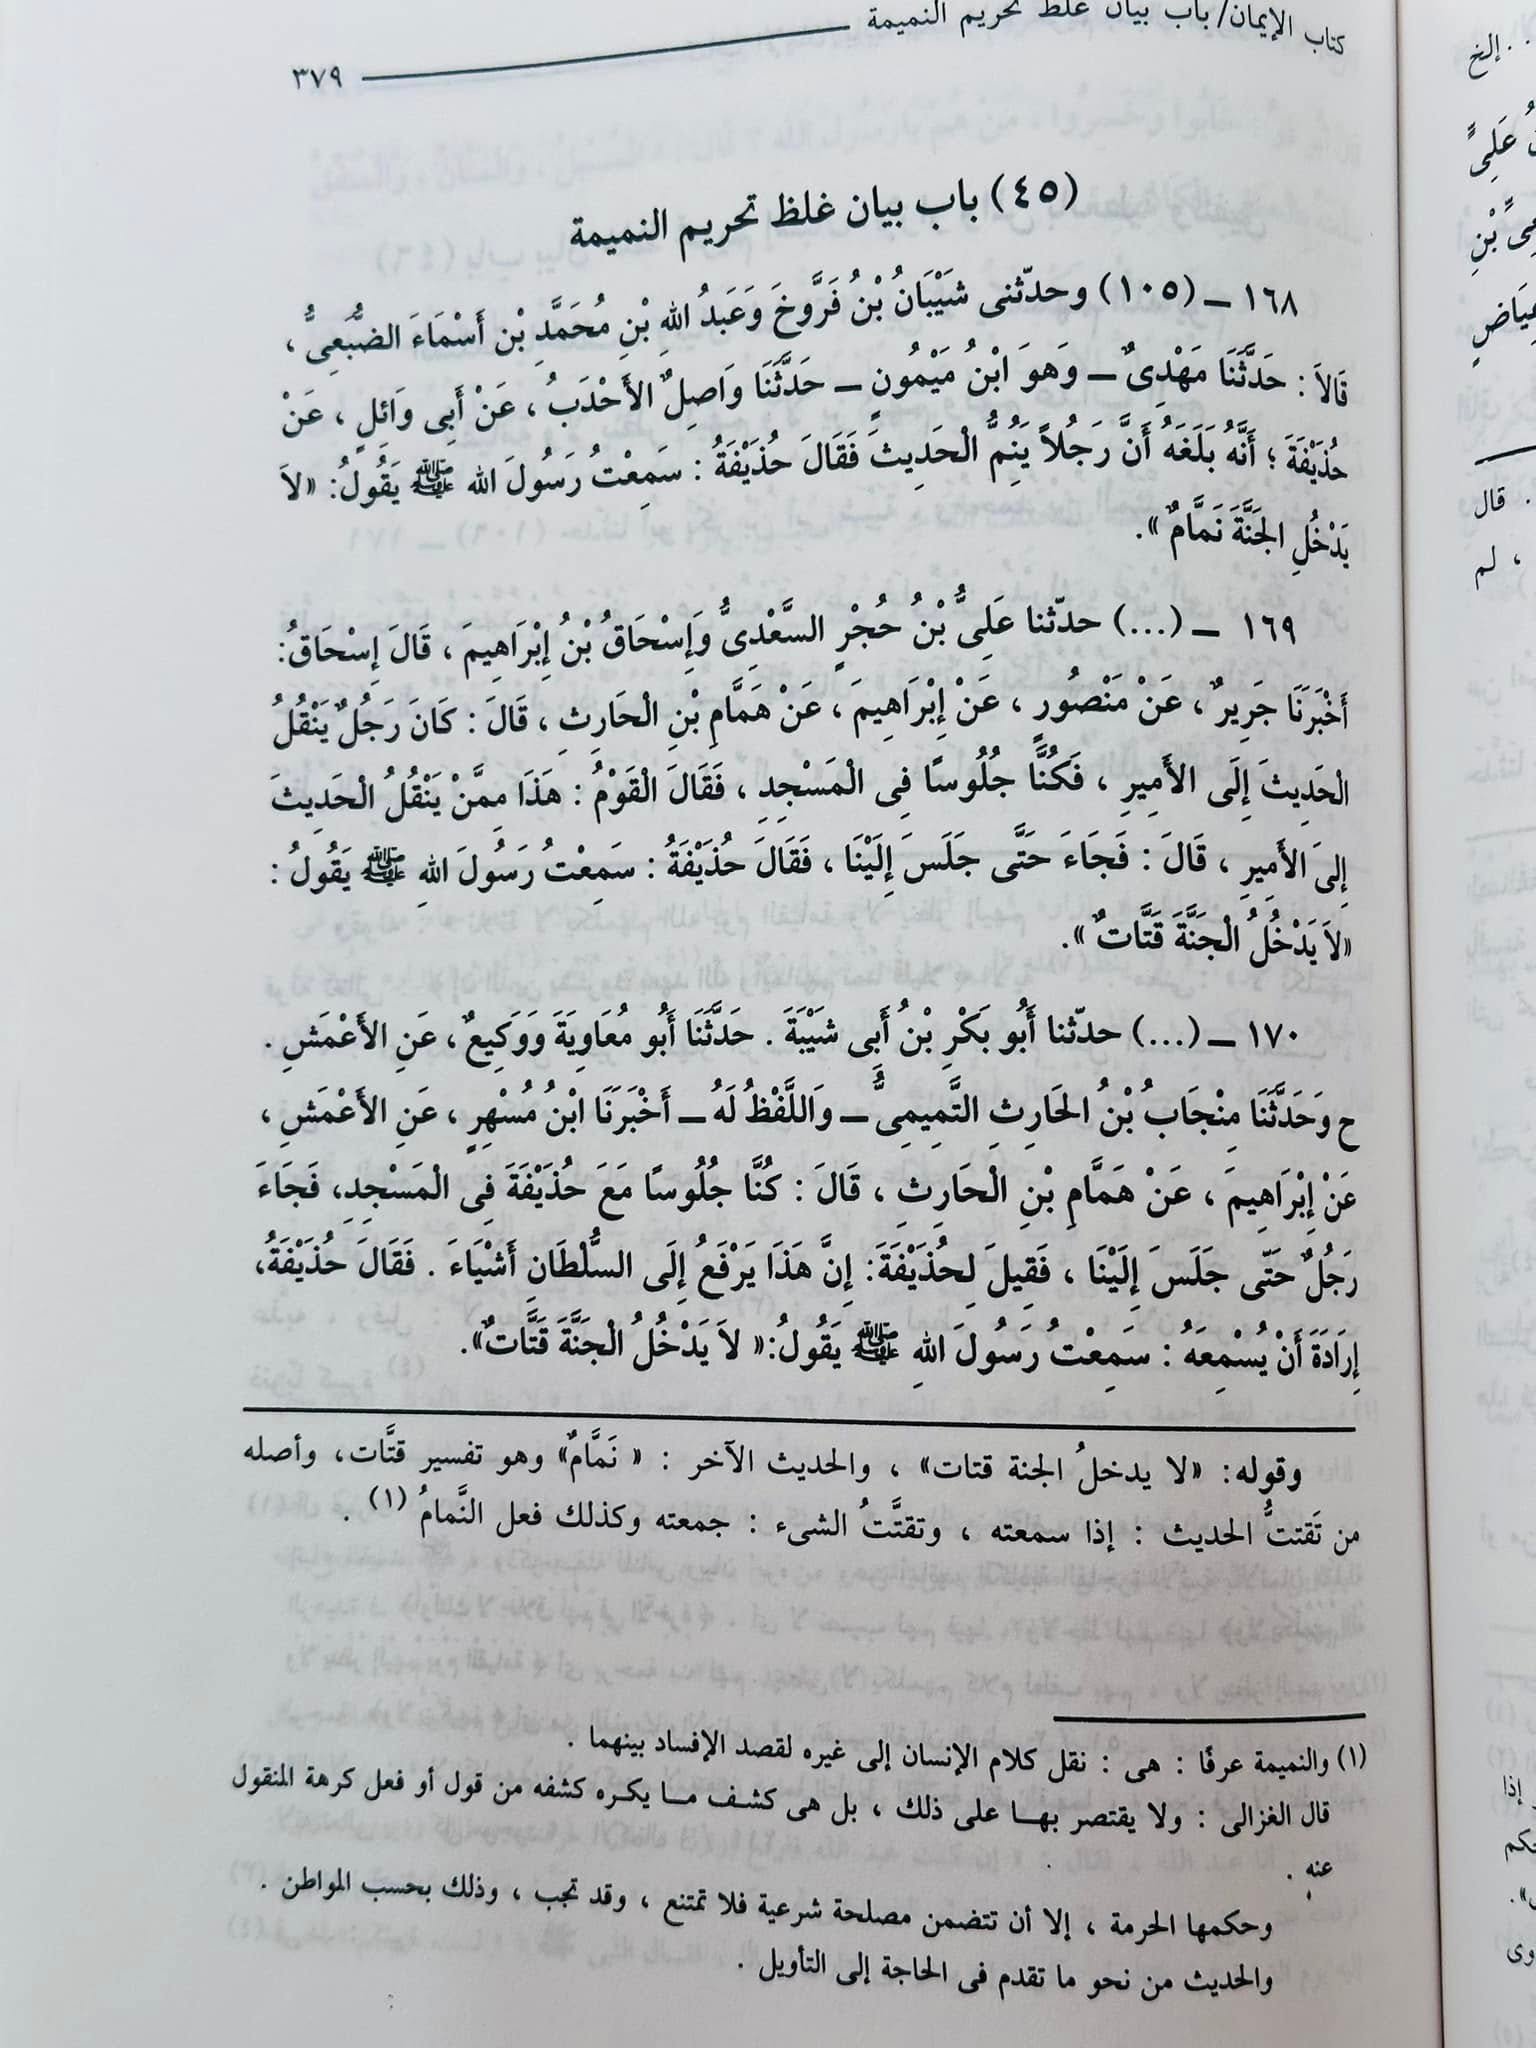 كتاب الإيمان/ باب بيان غلظ تحريم النميمة
٣٧٩
(٤٥) باب بيان غلظ تحريم النميمة
١٦٨ ــ (١٠٥) وحدّثنى شَيْبَانُ بْنُ فَرَّوخَ وَعَبدُ اللهِ بْنِ مُحَمَّدِ بْنِ أَسْمَاءَ الضُّبَعِىُّ ،
قَالاَ : حَدَّثَنَا مَهْدِىٌ ــ وَهوَ ابْنُ مَيْمُونٍ ــ حَدَّثَنَا وَاصِلٌ الأَحْدَبُ ، عَنْ أَبِى وَائِلٍ ، عَنْ
حُذَيْفَةَ ؛ أَنَّهُ بَلَغَهُ أَنَّ رَجُلاً يَنِمُّ الْحَدِيثَ فَقَالَ حُذَيْفَةُ : سَمِعْتُ رَسُولَ الله ﷺ يَقُولُ: «لاَ
يَدْخُلِ الجَنَّةَ نَمَّامٌ ».
١٦٩ ــ (...) حدّثنا عَلِىُّ بْنُ حُجْرٍ السَّعْدِىُّ وَإِسْحَاقُ بْنُ إِبْرَاهِيمَ ، قَالَ إِسْحَاقُ:
أَخْبَرَنَا جَرِيرٌ ، عَنْ مَنْصُورٍ ، عَنْ إِبْرَاهِيمَ ، عَنْ هَمَّامِ بْنِ الْحَارِثِ ، قَالَ : كَانَ رَجُلٌ يَنْقُلُ
الْحَدِيثَ إِلَى الأَمِيرِ ، فَكُنَّا جُلُوسًا فِى الْمَسْجِدِ ، فَقَالَ الْقَوْمُ : هَذَا مِمَّنْ يَنْقُلُ الْحَدِيثَ
إِلىَ الأَمِيرِ ، قَالَ : فَجَاءَ حَتَّى جَلَسَ إِلَيْنَا ، فَقَالَ حُذَيْفَةُ : سَمِعْتُ رَسُولَ اللهِ ﷺ يَقُولُ :
«لاَ يَدْخُلُ الْجَنَّةَ قَتَّاتٌ ».
١٧٠ ــ (...) حدّثنا أَبُو بَكْرِ بْنُ أَبِى شَيْبَةَ . حَدَّثَنَا أَبُو مُعَاوِيَةَ وَوَكِيعٌ ، عَنِ الأَعْمَشِ .
ح وَحَدَّثَنَا مِنْجَابُ بْنُ الحَارِثِ التَّمِيمِىُّ ــ وَاللَّفْظُ لَهُ ــ أَخْبَرَنَا ابْنُ مُسْهِرٍ ، عَنِ الأَعْمَشِ ،
عَنْ إِبْرَاهِيمَ ، عَنْ هَمَّامِ بْنِ الْحَارِثِ ، قَالَ : كُنَّا جُلُوسًا مَعَ حُذَيْفَةَ فِى الْمَسْجِدِ، فَجَاءَ
رَجُلٌ حَتّى جَلَسَ إِلَيْنَا ، فَقِيلَ لِحُذَيْفَةَ: إِنَّ هَذَا يَرْفَعُ إِلَى السُّلْطَانِ أَشْيَاءَ . فَقَالَ حُذَيْفَةُ،
إِرَادَةَ أَنْ يُسْمِعَهُ : سَمِعْتُ رَسُولَ اللهِ ﷺ يَقُولُ:« لاَ يَدْخُلُ الْجَنَّةَ قَتَّاتٌ».
وقوله: «لا يدخلُ الجنة قتات» ، والحديث الآخر : « نَمَّامٌ» وهو تفسير قتَّات، وأصله
من تَقتتُّ الحديث : إذا سمعته ، وتقتَّتُ الشىء : جمعته وكذلك فعل النَّمامُ (١) .
(١) والنميمة عرفًا : هى : نقل كلام الإنسان إلى غيره لقصد الإفساد بينهما .
قال الغزالى : ولا يقتصر بها على ذلك ، بل هى كشف ما يكره كشفه من قول أو فعل كرهة المنقول
عنه .
وحكمها الحرمة ، إلا أن تتضمن مصلحة شرعية فلا تمتنع ، وقد تجب ، وذلك بحسب المواطن .
والحديث من نحو ما تقدم فى الحاجة إلى التأويل .